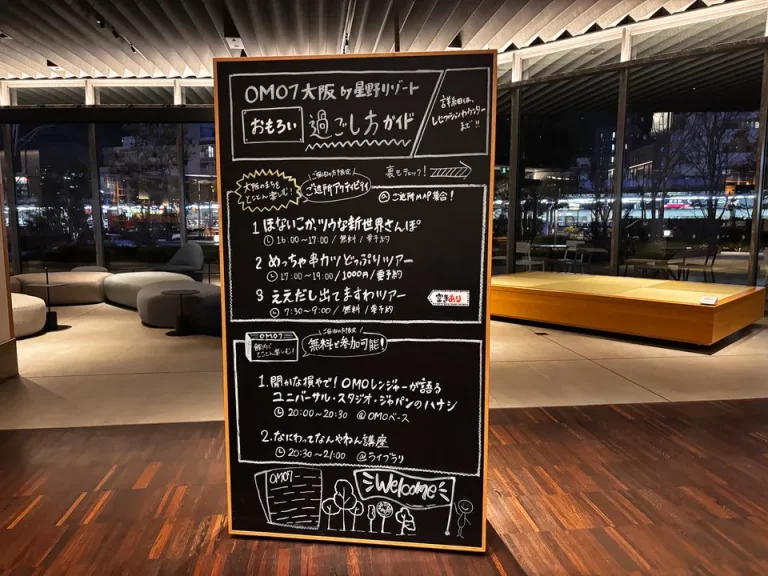 OMO7大阪 by 星野リゾート
おもろい 過ごし方ガイド
詳細は、
レセプションカウンター
まで!!
裏もチェック!
大阪のまちを
とことん楽しむ!
ご宿泊の方限定
ご近所アクティビティ
@ ご近所MAP集合!
1 ほないこか、ツウな新世界さんぽ
16:00~17:00 / 無料 / 要予約
2 めっちゃ串カツどっぷりツアー
17:00~19:00 / 1000円 / 要予約
3 ええだし出てますわツアー
空きあり
7:30~9:00 / 無料 / 要予約
OMO7
館内で
とことん楽しむ!
ご宿泊の方限定
無料で参加可能!
1. 聞かな損やで!OMOレンジャーが語る
ユニバーサル・スタジオ・ジャパンのハナシ
20:00~20:30 @OMOベース
2. なにわってなんやねん講座
20:30~21:00 @ライブラリ
OMO7
Welcome